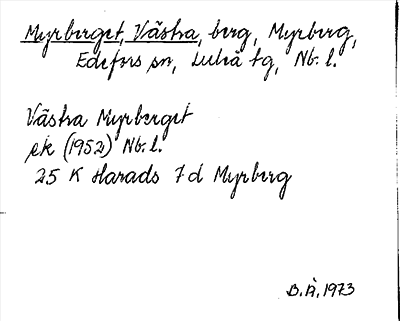 Myrberget, Västra, berg, Myrberg,
Edefors sn, Luleå tg, Nb. l.
Västra Myrberget
ek (1952) Nb. l.
25 K Harads 7d Myrberg
B.Å. 1973